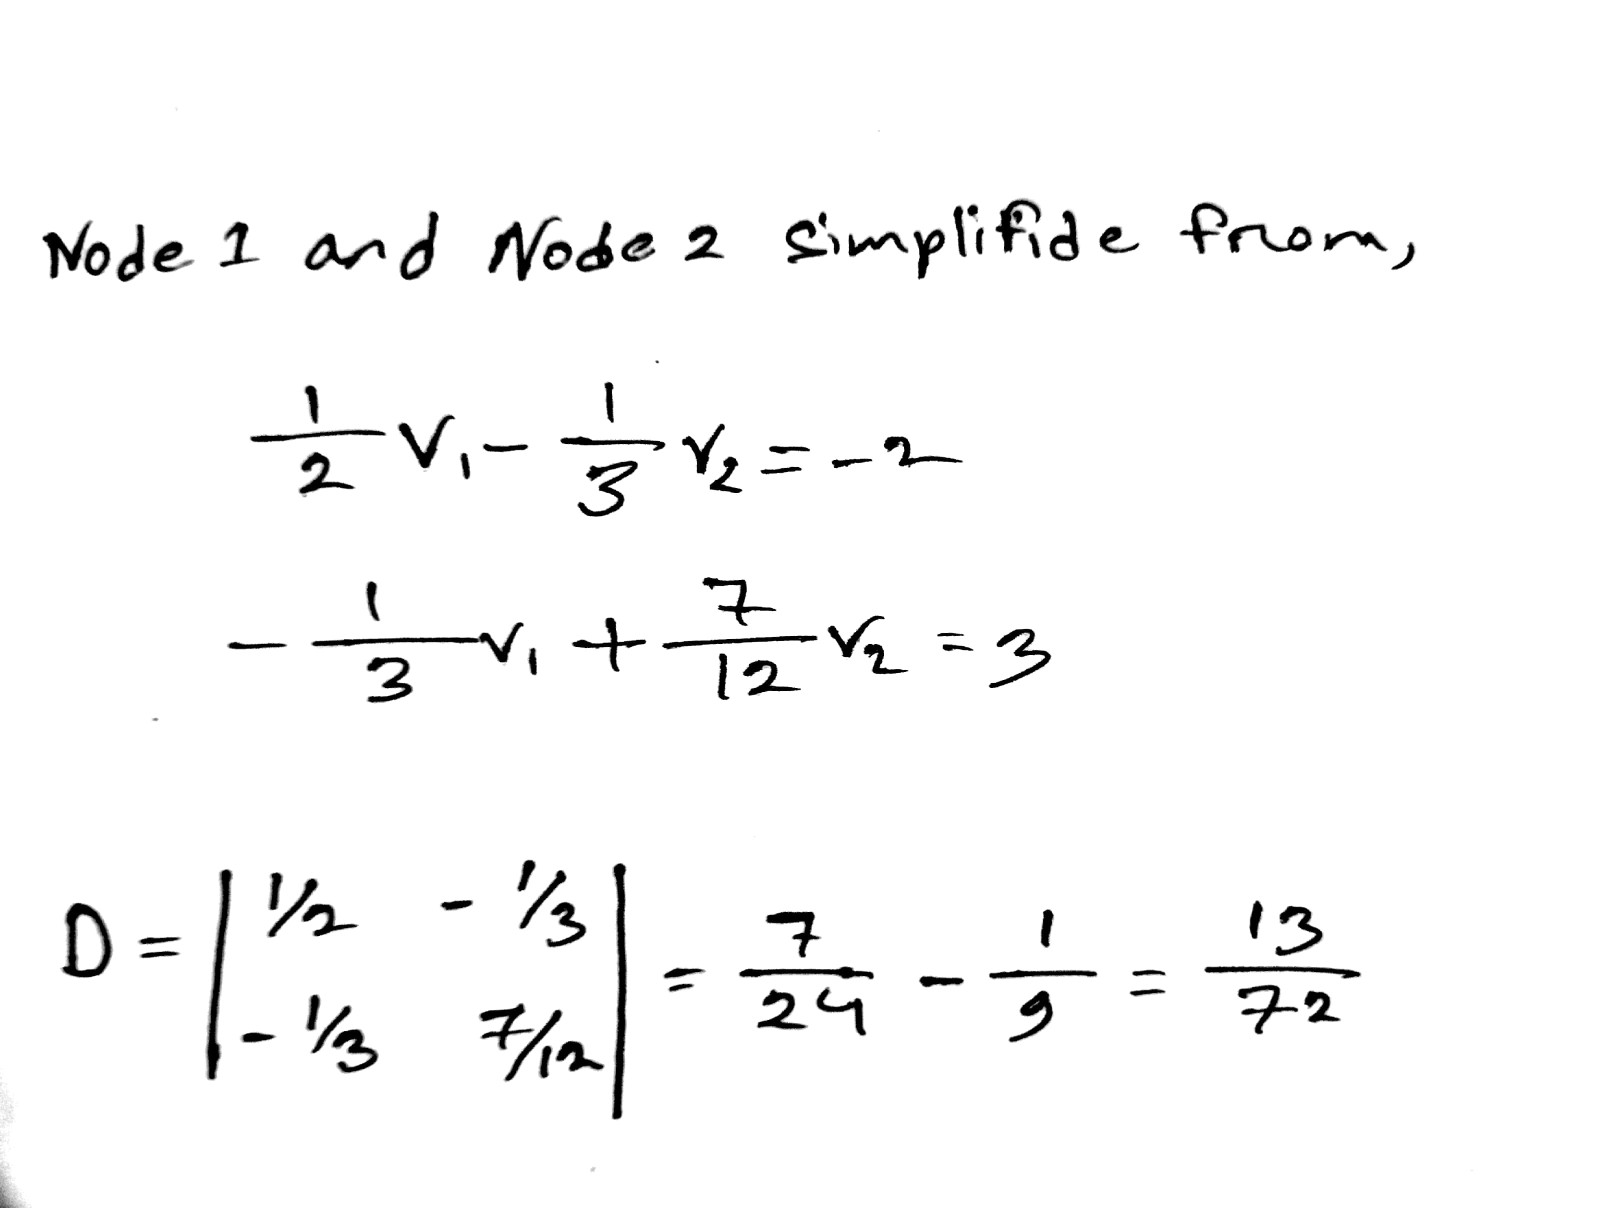 Node 1 and Node 2 Simplifide from,
1/2 V₁ - 1/3 V₂ = -2
- 1/3 V₁ + 7/12 V₂ = 3
D = | 1/2 - 1/3 | = 7/24 - 1/9 = 13/72
| - 1/3 7/12 |